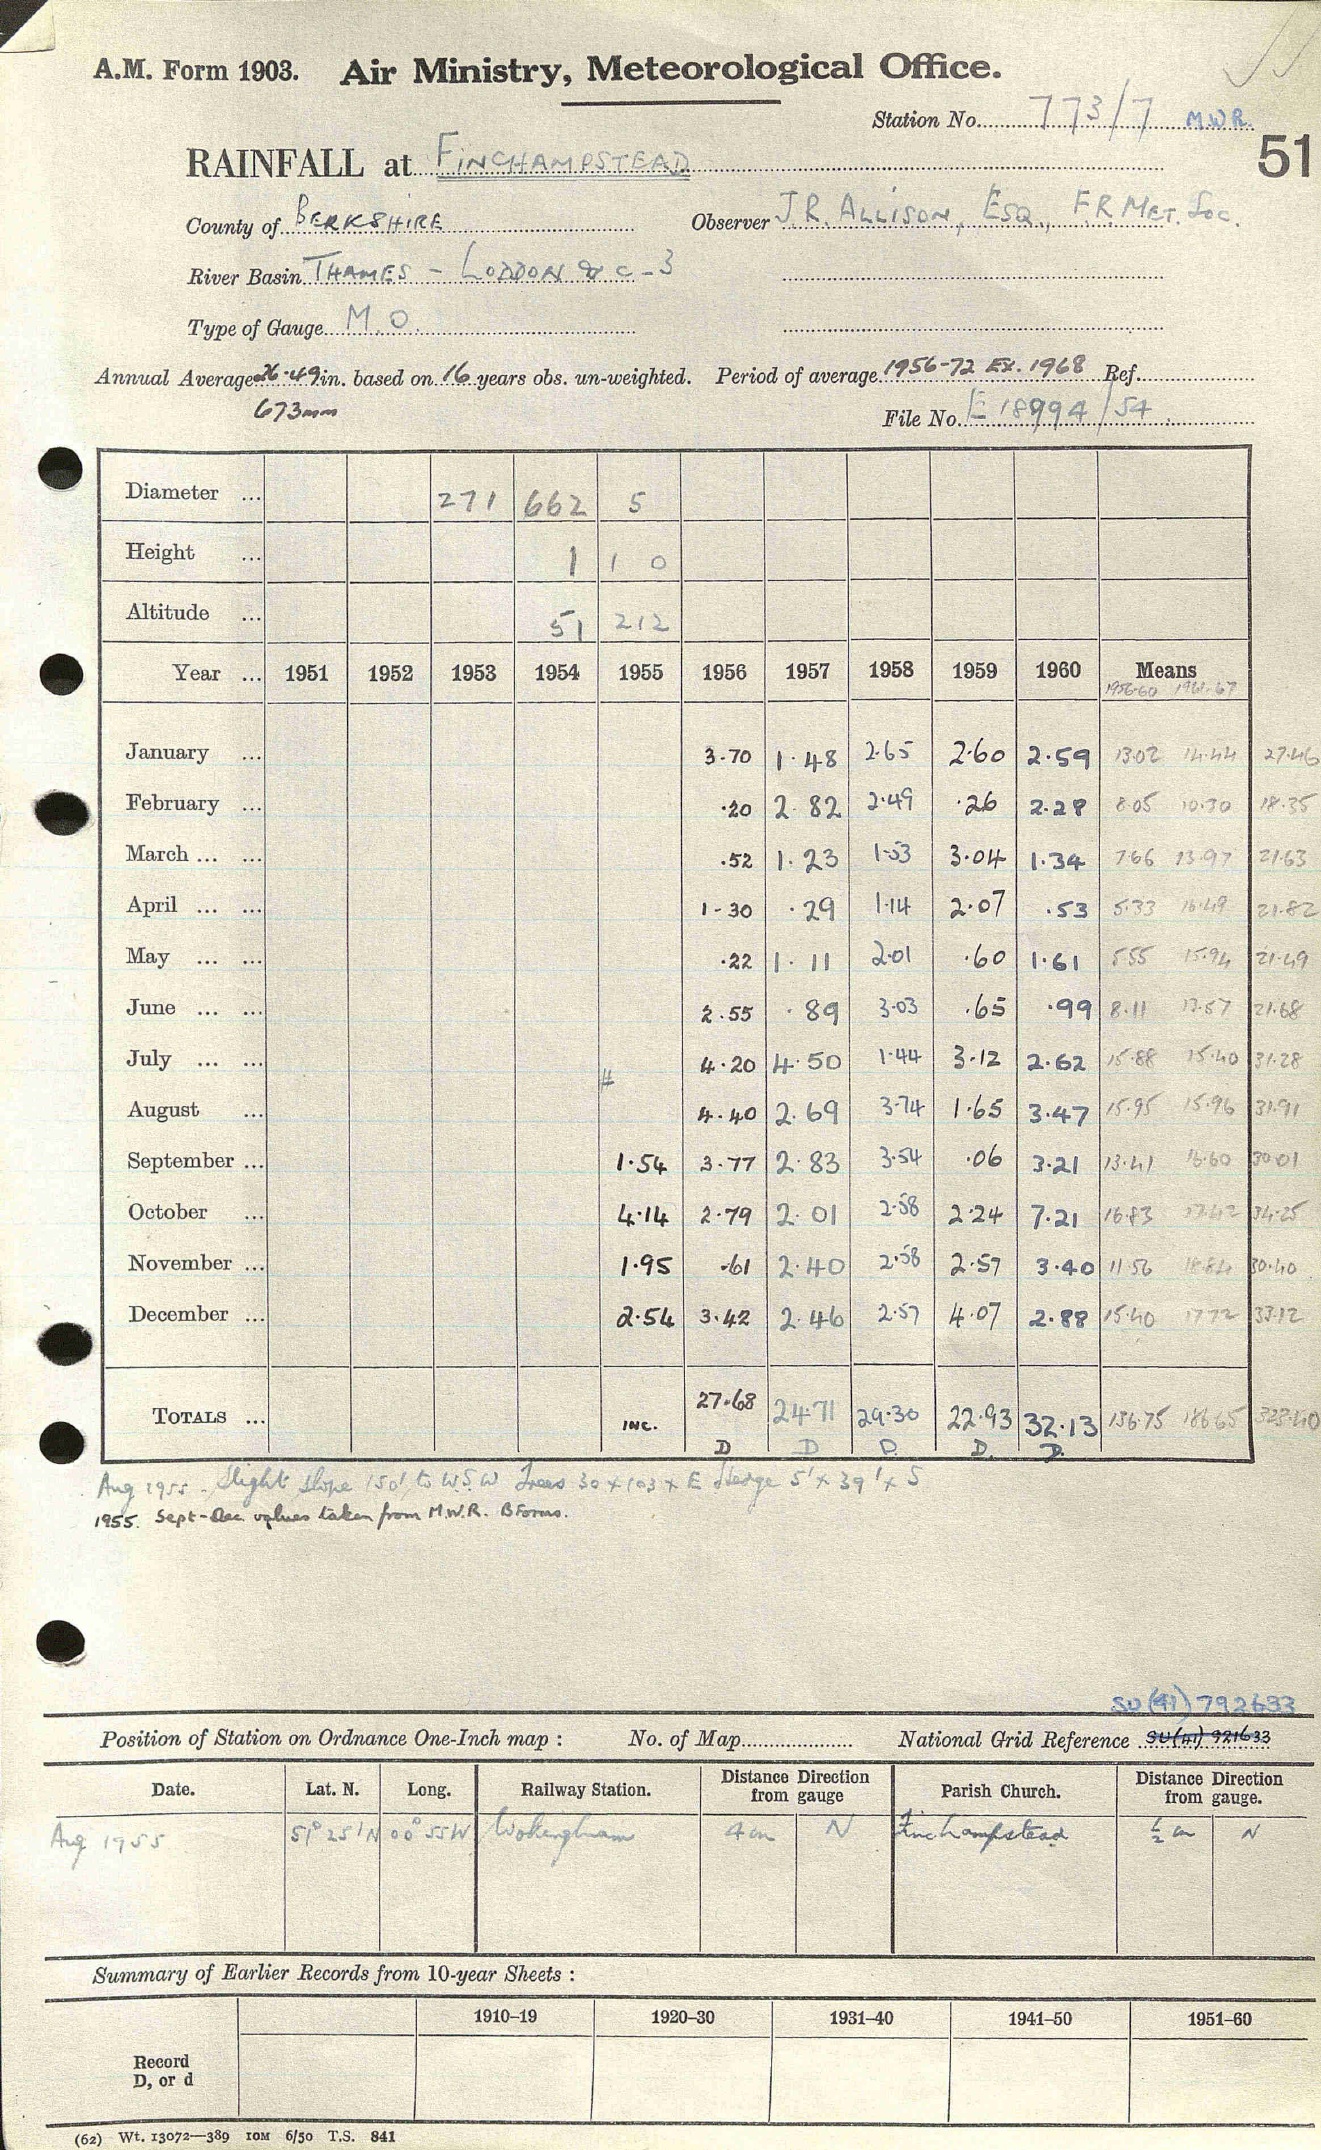 A.M. Form 1903. Air Ministry, Meteorological Office.
Station No. 773/7 M.W.R.
51
RAINFALL at FINCHAMPSTEAD
County of BERKSHIRE Observer J.R. ALLISON, ESQ., F.R.MET.SOC.
River Basin THAMES - LODDON &c - 3
Type of Gauge M.O.
Annual Average 26.49 in. based on 16 years obs. un-weighted. Period of average 1956-72 EX. 1968 Ref.
673mm
File No. E 18994/54
Diameter ... 271 662 5
Height ... 1 1 0
Altitude ... 51 212
Year ... 1951 1952 1953 1954 1955 1956 1957 1958 1959 1960 Means
1956-60 1961-67
January ... 3.70 1.48 2.65 2.60 2.59 13.02 14.44 27.46
February ... .20 2.82 2.49 .26 2.28 8.05 10.30 18.35
March ... ... .52 1.23 1.53 3.04 1.34 7.66 13.97 21.63
April ... ... 1.30 .29 1.14 2.07 .53 5.33 16.49 21.82
May ... ... .22 1.11 2.01 .60 1.61 5.55 15.94 21.49
June ... ... 2.55 .89 3.03 .65 .99 8.11 13.57 21.68
July ... ... 4.20 4.50 1.44 3.12 2.62 15.88 15.40 31.28
August ... 4.40 2.69 3.74 1.65 3.47 15.95 15.96 31.91
September ... 1.54 3.77 2.83 3.54 .06 3.21 13.41 16.60 30.01
October ... 4.14 2.79 2.01 2.58 2.24 7.21 16.83 17.42 34.25
November ... 1.95 .61 2.40 2.58 2.57 3.40 11.56 18.84 30.40
December ... 2.54 3.42 2.46 2.57 4.07 2.88 15.40 17.72 33.12
TOTALS ... INC. 27.68 24.71 29.30 22.93 32.13 136.75 186.65 323.40
D D D. D. D.
Aug 1955. Slight slope 150' to W.S.W Trees 30 x 103 x E Hedge 5' x 39' x S
1955. Sept-Dec values taken from M.W.R. B Forms.
SU(41) 792633
Position of Station on Ordnance One-Inch map : No. of Map National Grid Reference SU(41) 921633
Date. Lat. N. Long. Railway Station. Distance from gauge Direction Parish Church. Distance from gauge. Direction
Aug 1955 51° 25' N 00° 55 W Wokingham 4 m N Finchampstead ½ m N
Summary of Earlier Records from 10-year Sheets :
1910–19 1920–30 1931–40 1941–50 1951–60
Record
D, or d
(62) Wt. 13072—389 10M 6/50 T.S. 841